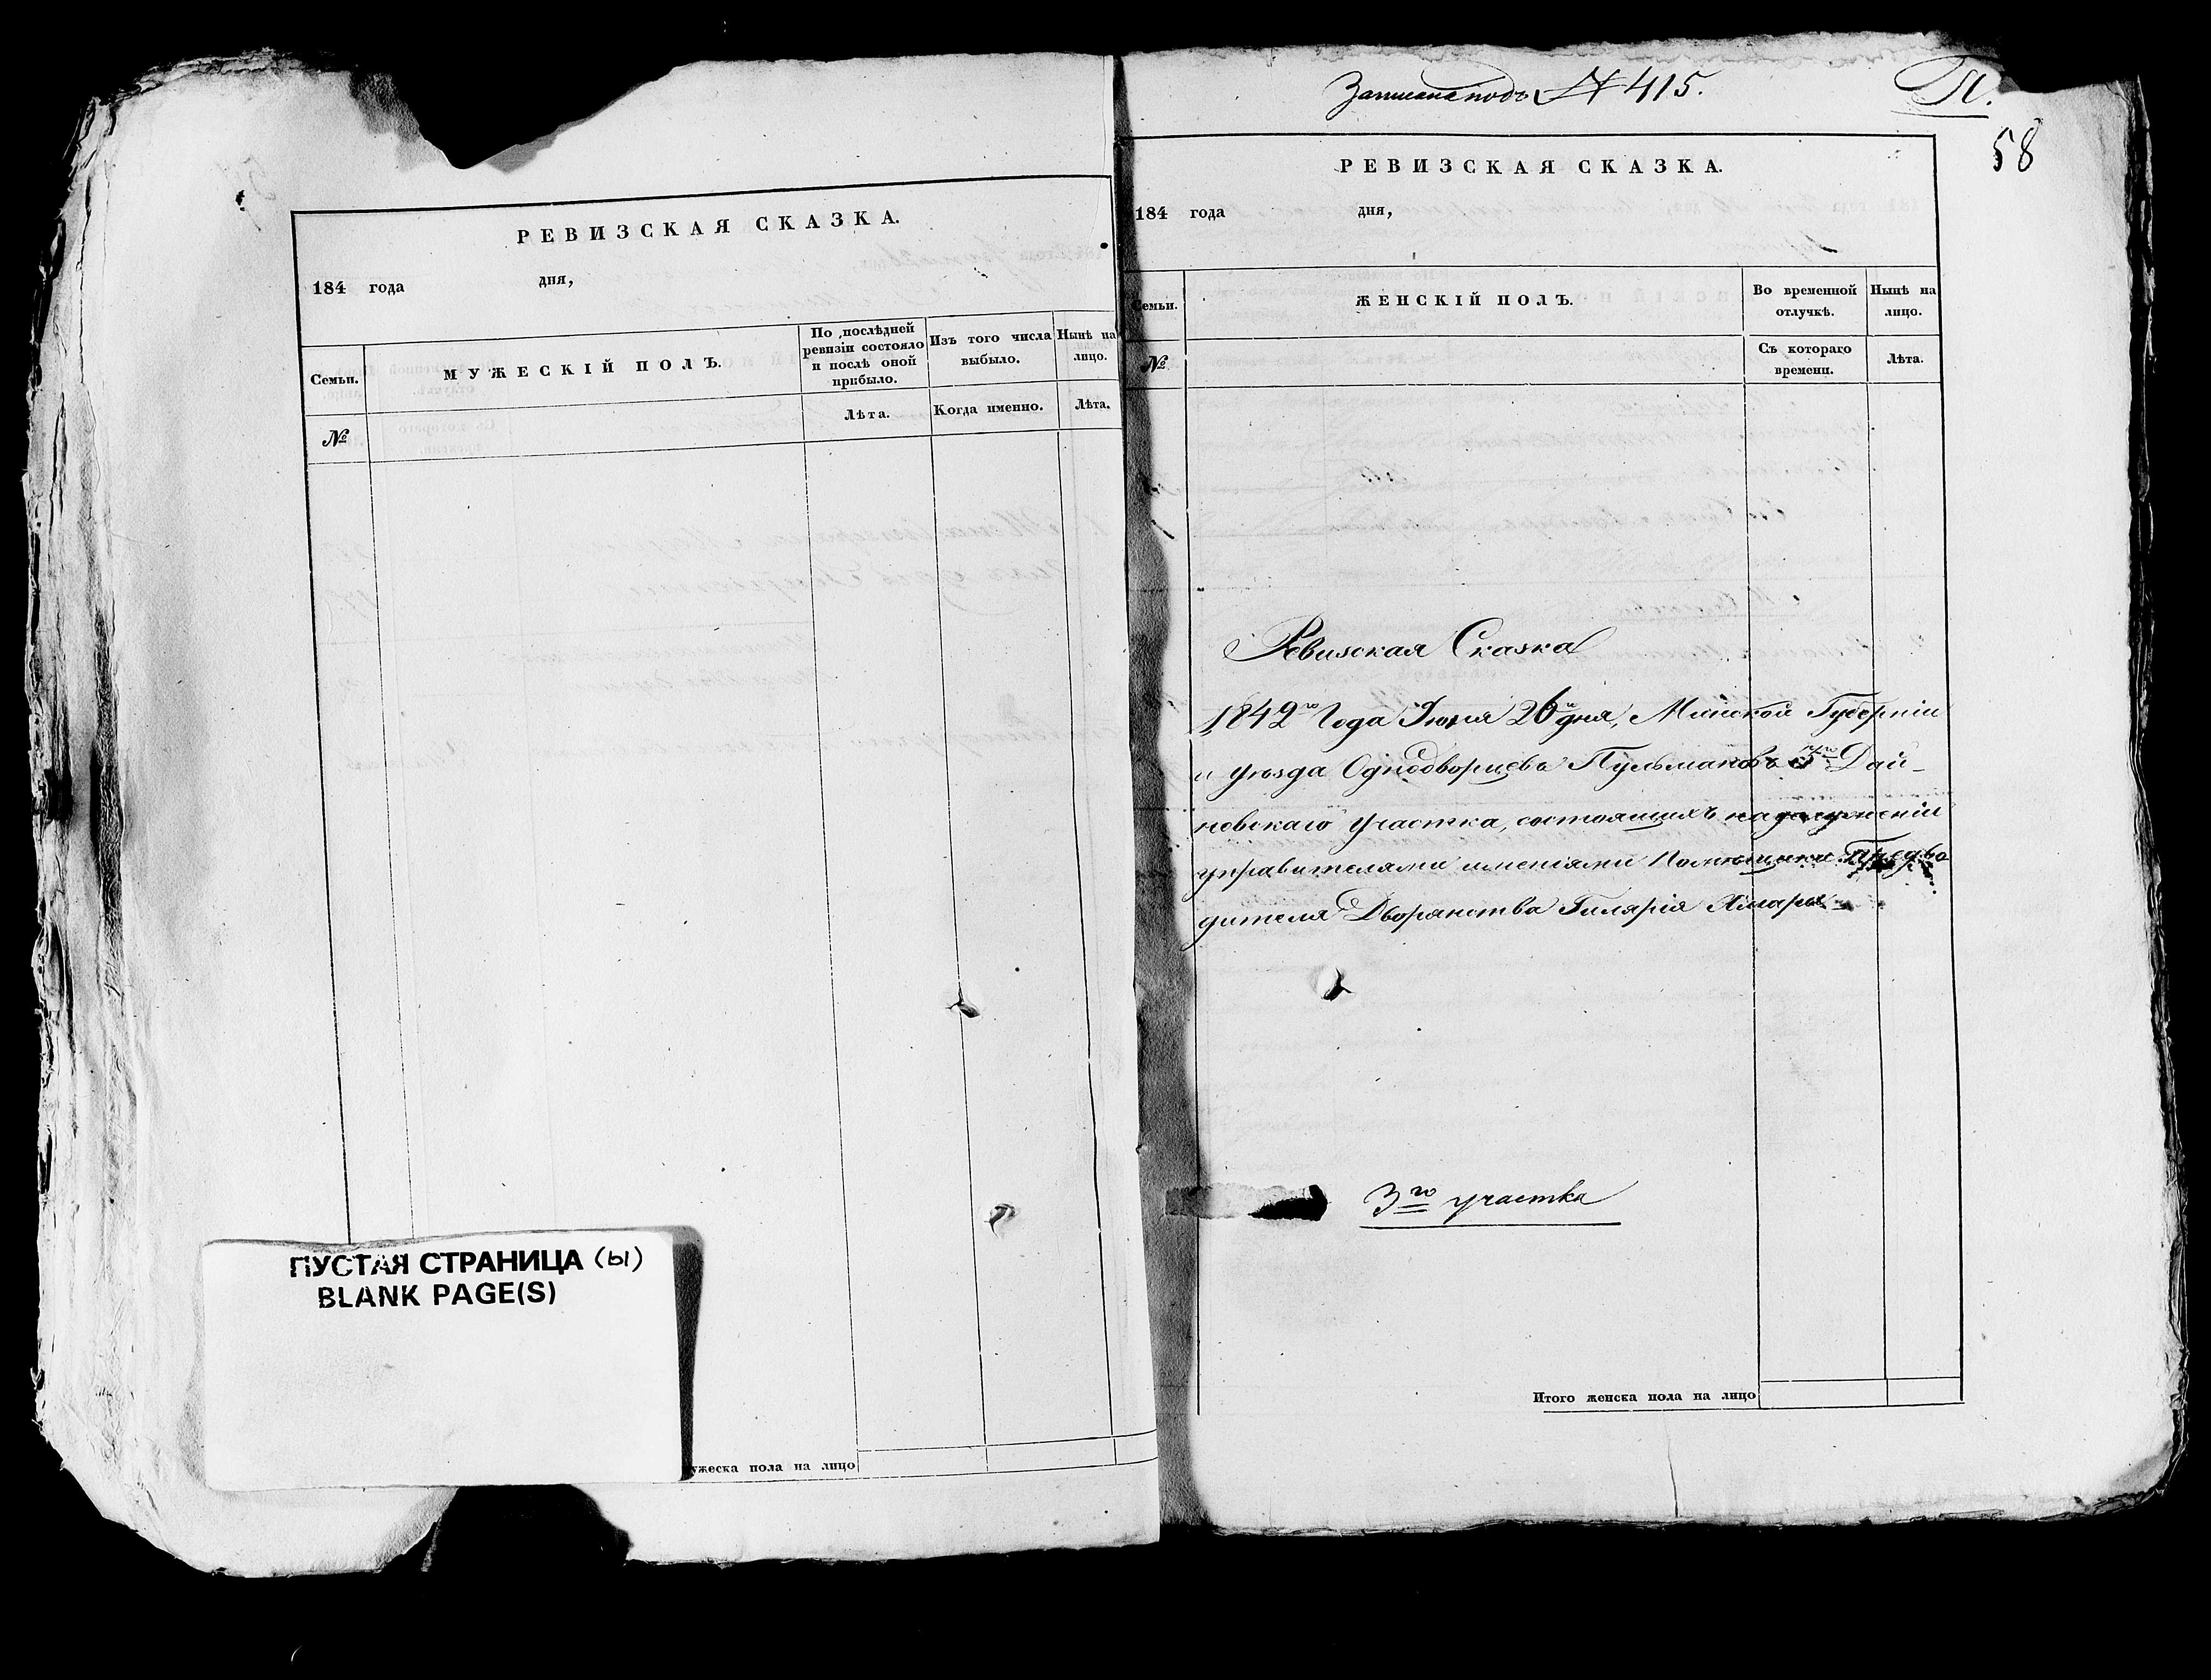 РЕВИЗСКАЯ СКАЗКА.
184 года дня,
Семьи.
МУЖЕСКІЙ ПОЛЪ.
По послѣдней ревизіи состояло и послѣ оной прибыло.
Изъ того числа выбыло.
Нынѣ на лицо.
№
Лѣта.
Когда именно.
Лѣта.
ПУСТАЯ СТРАНИЦА (ы)
BLANK PAGE(S)
ужеска пола на лицо
Записана подъ № 415.
58
РЕВИЗСКАЯ СКАЗКА.
184 года дня,
Семьи.
ЖЕНСКІЙ ПОЛЪ.
Во временной отлучкѣ.
Нынѣ на лицо.
№
Съ котораго времени.
Лѣта.
Ревизская Сказка
1842го Года Іюня 26 дня, Минской Губерніи
и уѣзда Однодворцевъ Пульмановъ Дай-
новскаго участка, состоящихъ на служеніи
управителями имѣніями Предво
дителя Дворянства Гилярія
3го участка
Итого женска пола на лицо